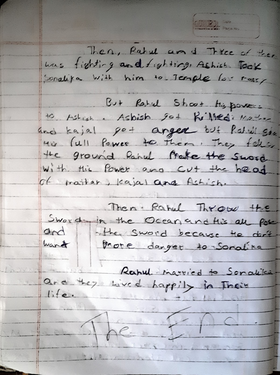 Then, Rahul and Three of them
was fighting and fighting. Ashish Took
Sonalika with him to Temple for
But Rahul Shoot his power
to Ashish. Ashish got killed. Mother
and Kajal got anger but Rahul
his full Power to Them. They
the ground Rahul Make the sword
with his Power and cut the head
of mother, Kajal and Ashish.
Then Rahul Throw the
Sword in the Ocean and his all
and the sword because he don't
want more danger to Sonalika
Rahul married to Sonalika
and they loved happily in Their
life.
The End